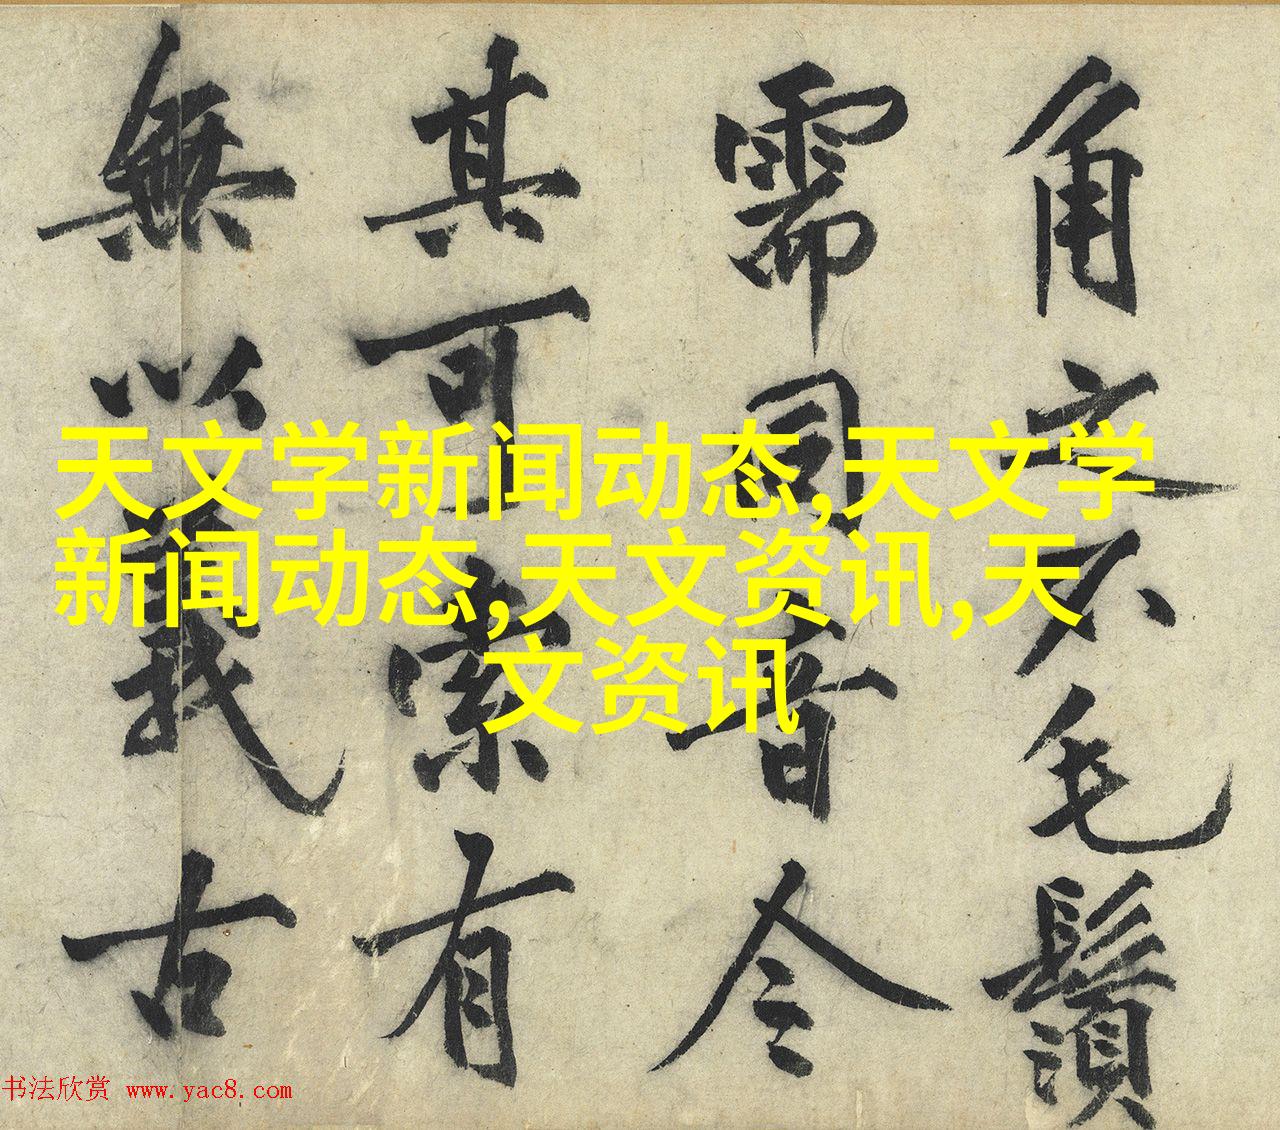 天文学新闻动态,天文学
新闻动态,天文资讯,天
文资讯
角不毛鬚
需同今
其可索有
無以古
书法欣赏 www.yac8.com